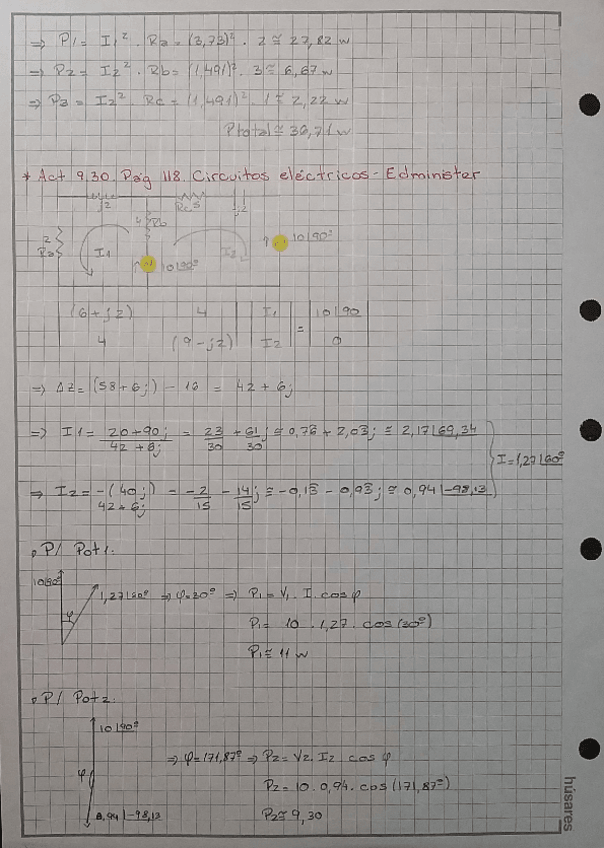 ⇒ P1= I1² . Ra = (3,73)² . 2 ≅ 27,82 w
⇒ P2= I2² . Rb= (1,491)² . 3 ≅ 6,67 w
⇒ P3= I2² . Rc = (1,491)² . 1 ≅ 2,22 w
Ptotal ≅ 36,71 w
* Act 9.30. Pág 118. Circuitos eléctricos - Edminister
j2 Rc5 -j2
4 Rb
2 Ra I1 I2 10|90º
10|90º
(6+j2) 4 I1 = 10|90
4 (9-j2) I2 0
⇒ ΔZ= (58+6j) - 16 = 42 + 6j
⇒ I1 = 20+90j / 42+6j = 23/30 + 61/30 j ≅ 0,76 + 2,03j ≅ 2,17|69,34
I=1,27|60º
⇒ I2 = -(40j) / 42+6j = -2/15 - 14/15 j ≅ -0,13 - 0,93j ≅ 0,94|-98,13
• P/ Pot1:
10|90º
1,27|60º ⇒ φ=30º ⇒ P1 = V1 . I . cos φ
φ
P1= 10 . 1,27 . cos (30º)
P1≅ 11 w
• P/ Pot2:
10|90º
φ ⇒ φ=171,87º ⇒ P2= V2 . I2 . cos φ
P2= 10 . 0,94 . cos (171,87º)
0,94|-98,13
P2≅ 9,30
húsares